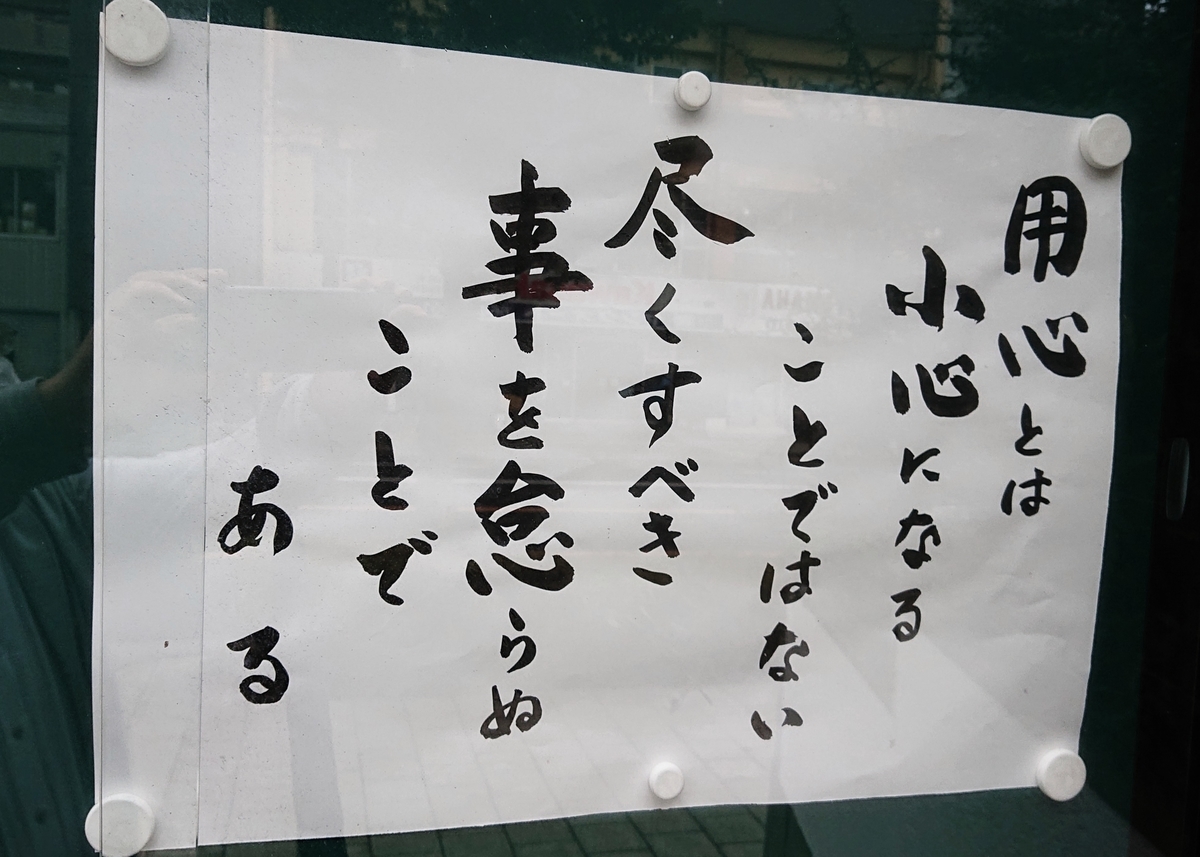 用心とは
小心になる
ことではない
尽くすべき
事を怠らぬ
ことで
ある